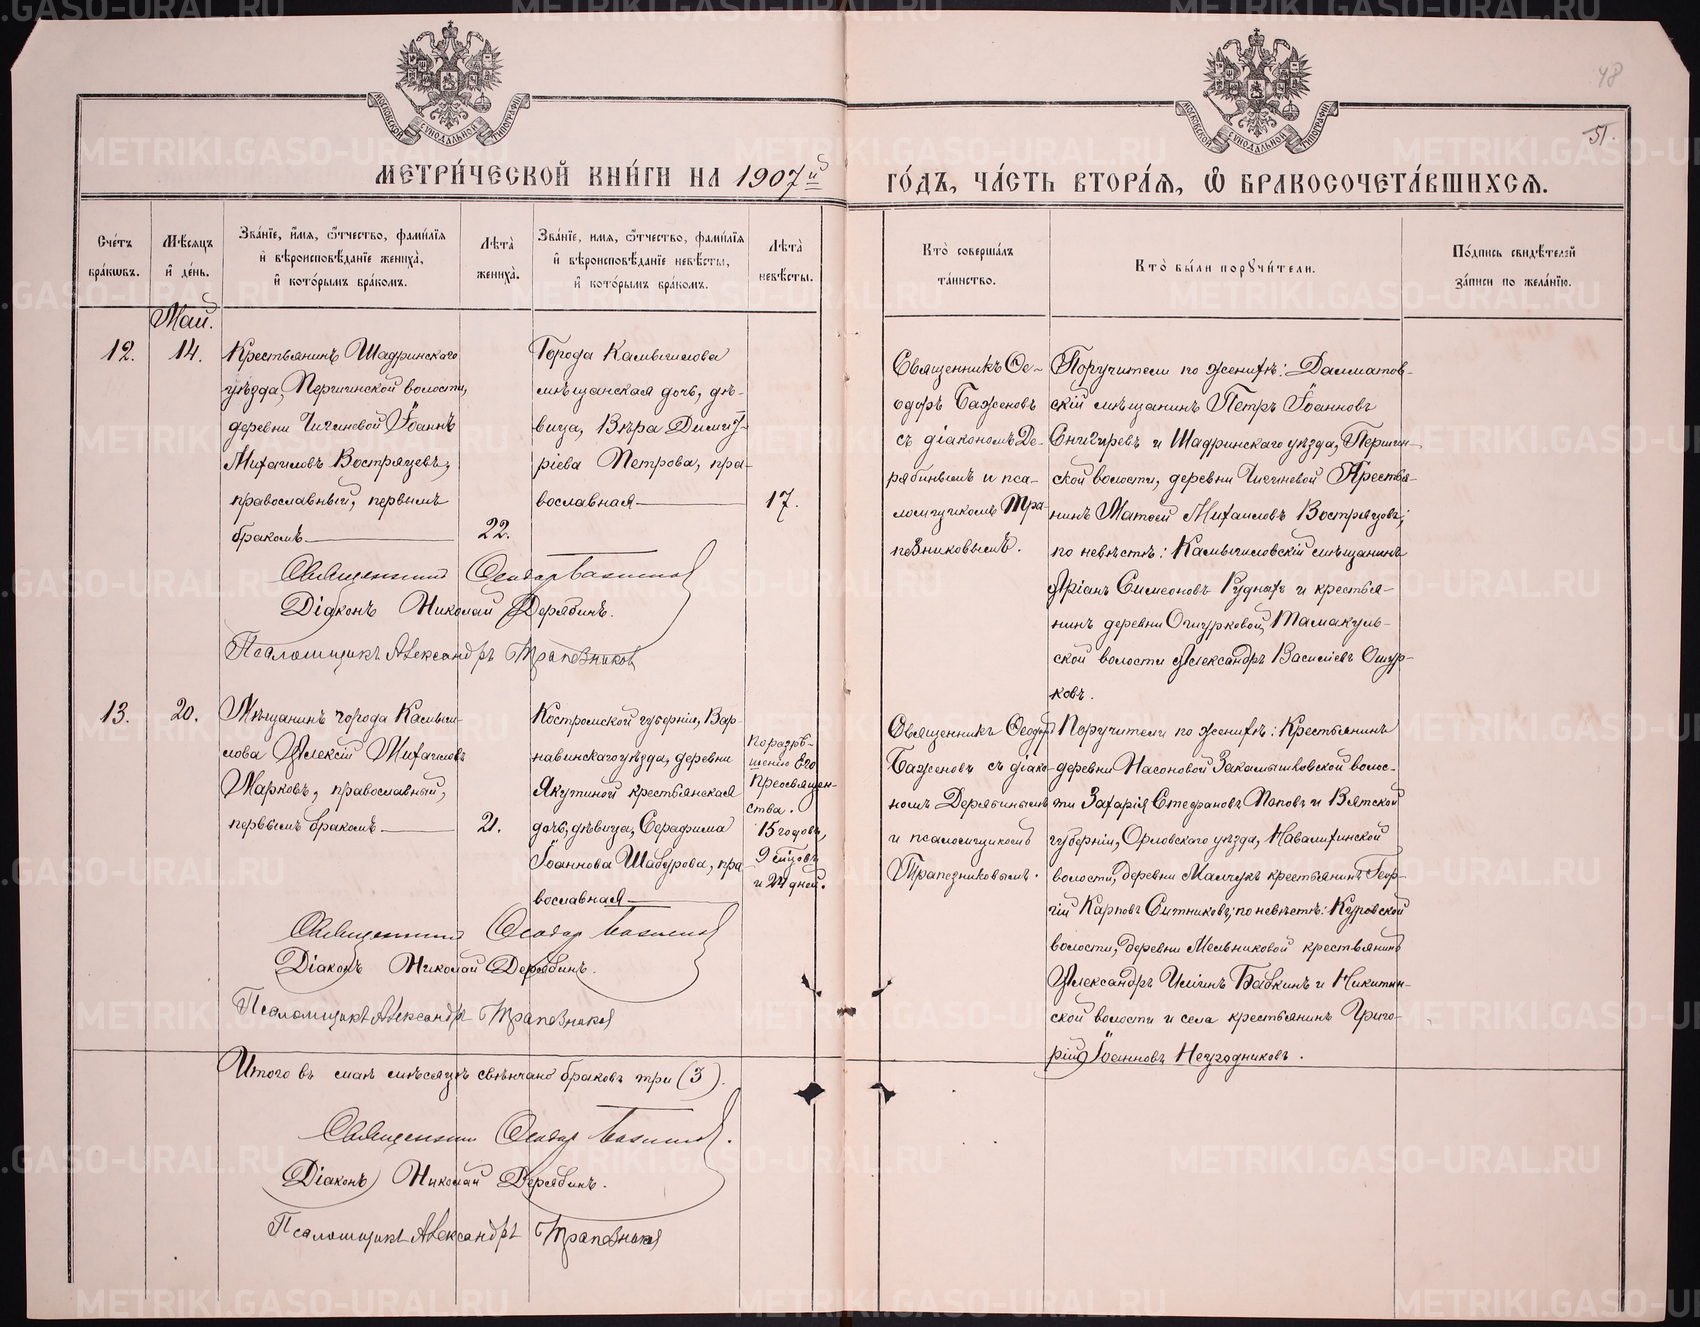 48
51.
МОСКОВСКОЙ СѴНОДАЛЬНОЙ ТИПОГРАФІИ
МОСКОВСКОЙ СѴНОДАЛЬНОЙ ТИПОГРАФІИ
МЕТРИ́ЧЕСКОЙ КНИ́ГИ НА 1907й
ГО́ДЪ, ЧА́СТЬ ВТОРА́Ѧ, Ѽ БРАКОСОЧЕТА́ВШИХСѦ.
Сче́тъ
бра́кѡвъ.
Мѣ́сѧцъ
и҆ де́нь.
Зва́нїе, и҆́мѧ, ѻ҆́тчество, фами́лїѧ
и҆ вѣроисповѣ́данїе жениха̀,
и҆ кото́рымъ бра́комъ.
Лѣ́та̀
жениха̀.
Зва́нїе, и҆мѧ, ѻ҆́тчество, фами́лїѧ
и҆ вѣроисповѣ́данїе невѣ́сты,
и҆ кото́рымъ бра́комъ.
Лѣ́та̀
невѣ́сты.
Кто̀ соверша́лъ
та́инство.
Кто̀ бы́ли порꙋчи́тели.
По́дпись свидѣ́телей
за́писи по жела́нїю.
Май.
12.
14.
Крестьянинъ Шадринскаго
уѣзда, Першинской волости,
деревни Чигиневой Іоаннъ
Михаиловъ Вострецевъ,
православный, первымъ
бракомъ
22.
Города Камышлова
мѣщанская дочь, дѣ-
вица, Вѣра Димит-
ріева Петрова, пра-
вославная
17.
Священникъ Ѳе-
одоръ Баженовъ
съ діакономъ Де-
рябинымъ и пса-
ломщикомъ Тра-
пезниковымъ.
Поручители по женихѣ: Далматов-
скій мѣщанинъ Петръ Іоанновъ
Снигиревъ и Шадринскаго уѣзда, Першин-
ской волости, деревни Чигиневой крестья-
нинъ Матѳей Михаиловъ Вострецовъ;
по невѣстѣ: Камышловскій мѣщанинъ
Аріанъ Симеоновъ Руднихъ и крестья-
нинъ деревни Ошурковой, Тамакуль-
ской волости Александръ Василіевъ Ошур-
ковъ.
Священникъ Ѳеодоръ Баженовъ
Діаконъ Николай Дерябинъ.
Псаломщикъ Александръ Трапезниковъ
13.
20.
Мѣщанинъ города Камыш-
лова Алексій Михаиловъ
Марковъ, православный,
первымъ бракомъ
21.
Костромской губерніи, Вар-
навинскаго уѣзда, деревни
Якутиной крестьянская
дочь, дѣвица, Серафима
Іоаннова Шабурова, пра-
вославная
По разрѣ-
шенію Его
Преосвящен-
ства.
15 годовъ,
9 мѣсяцовъ
и 24 дней.
Священникъ Ѳеодоръ
Баженовъ съ діако-
номъ Дерябинымъ
и псаломщикомъ
Трапезниковымъ.
Поручители по женихѣ: Крестьянинъ
деревни Насоновой Закамышловской волос-
ти Захарія Стефановъ Поповъ и Вятской
губерніи, Орловскаго уѣзда, Навалихинской
волости, деревни Малчукъ крестьянинъ Геор-
гій Карповъ Ситниковъ; по невѣстѣ: Куровской
волости, деревни Мельниковой крестьянинъ
Александръ Иліинъ Бабкинъ и Никитин-
ской волости и села крестьянинъ Григо-
рій Іоанновъ Неугодниковъ.
Священникъ Ѳеодоръ Баженовъ
Діаконъ Николай Дерябинъ.
Псаломщикъ Александръ Трапезниковъ
Итого въ маѣ мѣсяцѣ свѣнчано браковъ три (3).
Священникъ Ѳеодоръ Баженовъ.
Діаконъ Николай Дерябинъ.
Псаломщикъ Александръ Трапезниковъ
METRIKI.GASO-URAL.RU